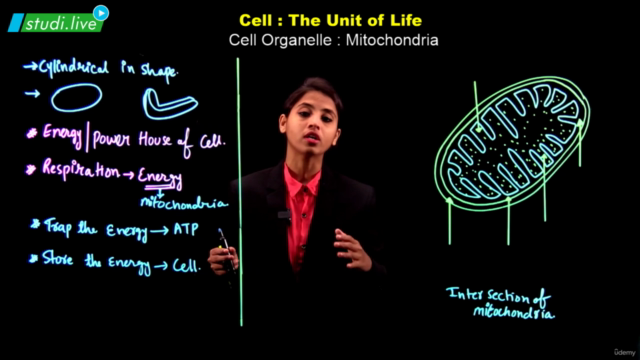 studi.live
Cell : The Unit of Life
Cell Organelle : Mitochondria
→ Cylindrical in shape.
→
* Energy/Power House of Cell.
* Respiration → Energy
↓
mitochondria
* Trap the Energy → ATP
* Store the Energy → Cell.
Inter section of
mitochondria
ûdemy